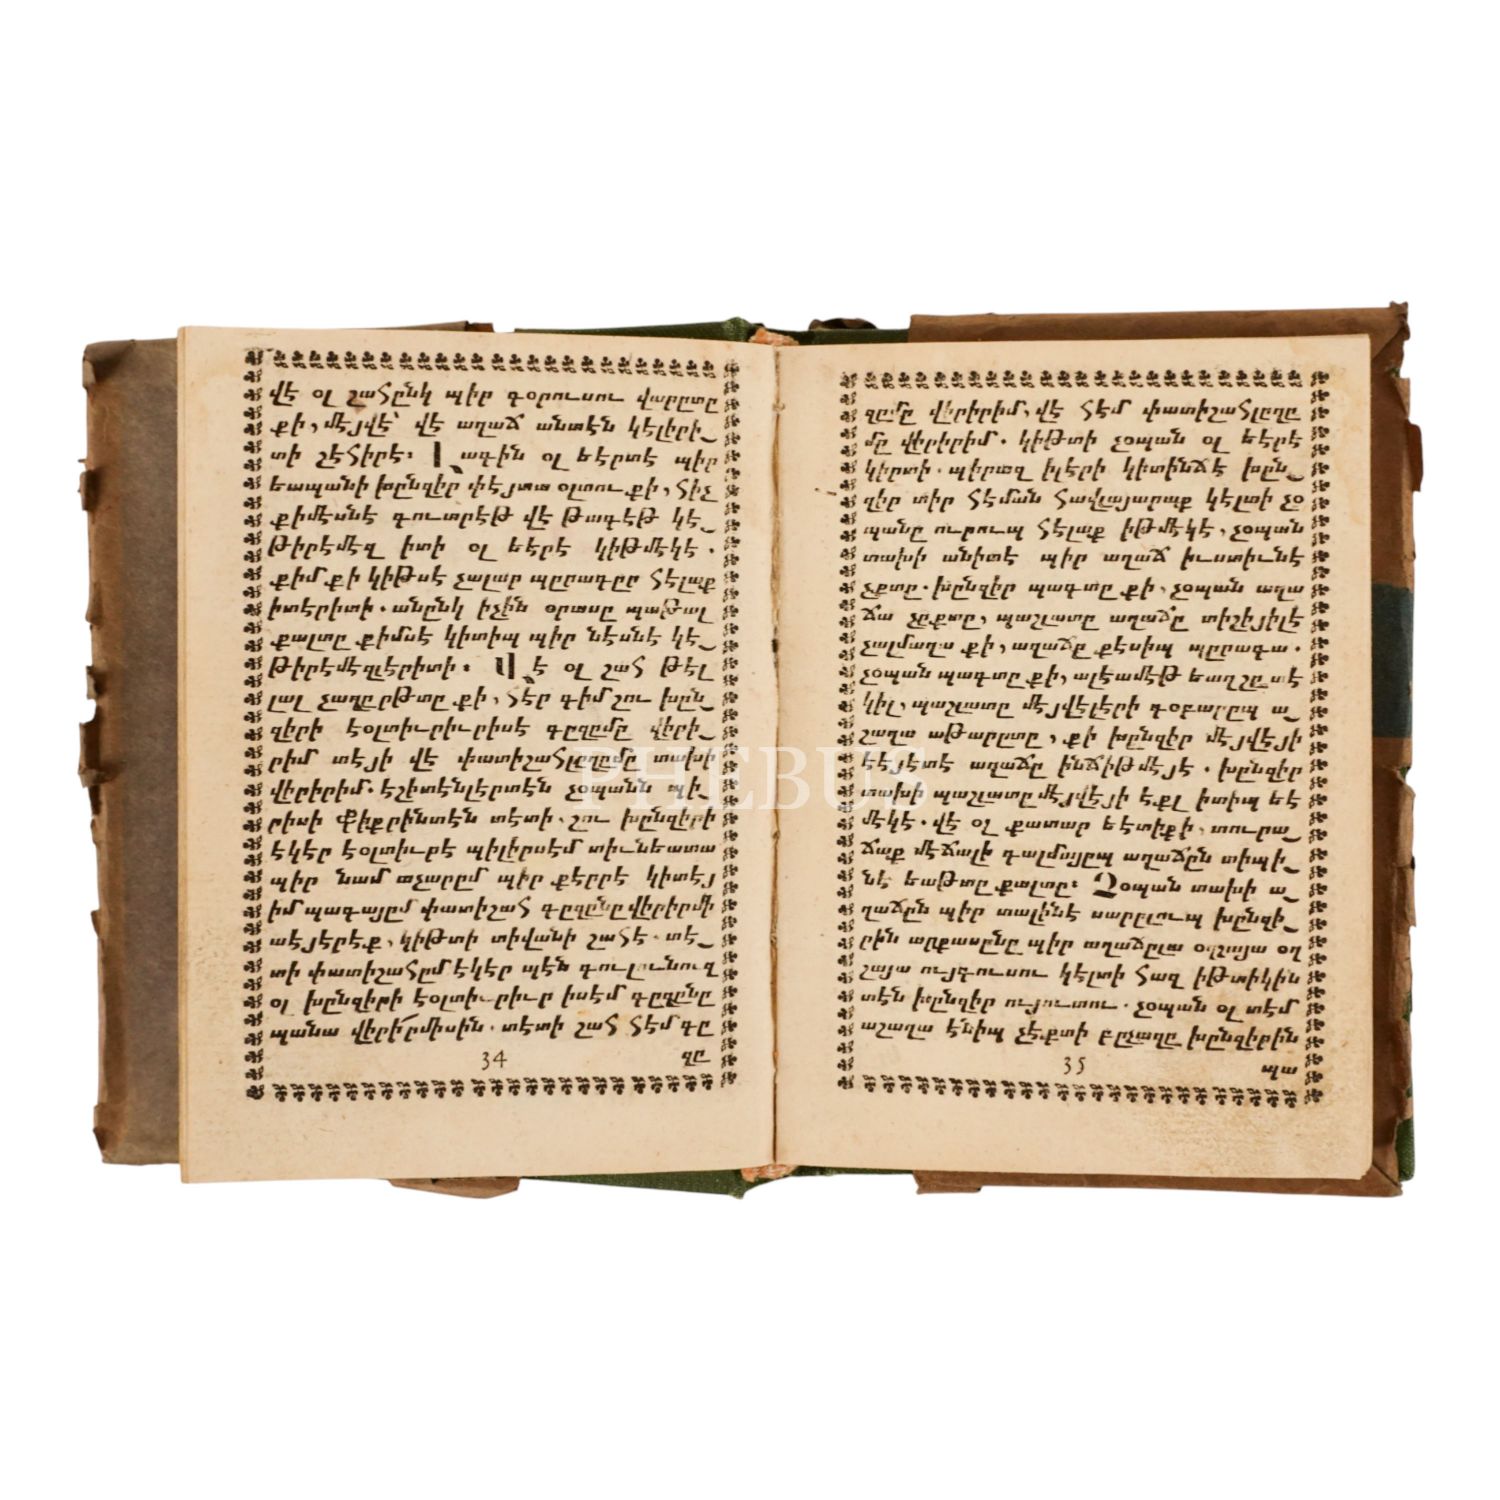 վէ օլ շահընկ պիր գօրուսու վարըտը
քի, մէյվէ՝ վէ աղաճ անտէն կէլիրի_
տի շէհիրէ։ Լազին օլ եէրտէ պիր
եապանի խընզիր փէյտա օլտու քի, հիչ
քիմէսնէ գուտրէթ վէ թագէթ կէ_
թիրէմէզ իտի օլ եէրէ կիթմէկէ.
քիմ քի կիթսէ չալար պըրագըր հէլաք
իտէրիտի. անընկ իչին օրասը պաթալ
քալտը քիմսէ կիտիպ պիր նէսնէ կէ_
թիրէմէզլէրիտի։ Վէ օլ շահ թէլ
լալ չաղըրթտը քի, հէր գիմ շու խըն_
զիրի էօլտիւրիւրիսէ գըզըմը վէրի_
րիմ տէյի վէ փատիշահլըղըմը տախի
վէրիրիմ. էշիտէնլէրտէն չօպանն պի_
րիսի Ֆիքրինտէն տէտի. շու խընզիրի
էկէր էօլտիւրէ պիլիրսէմ տիւնեատա
պիր նամ աչարըմ պիր քէրրէ կիտէյ
իմ պագայըմ փատիշահ գըզընը վէրիրմի
աէյէրէք, կիթտի տիվանի շահէ. տէ_
տի փատիշահըմ էկէր պէն գուլունուզ
օլ խընզիրի էօլտիւրիւր իսէմ գըզընը
պանա վէրիրմիսին. տէտի շահ հէմ գը
34 զը
զըմը վէրիրիմ, վէ հէմ փատիշահլըղը
մը վէրիրիմ. կիթտի չօպան օլ եէրէ
կիրտի. պիրազ իլէրի կիտինճէ խըն_
զիր տիր հէման հավլայարաք կէլտի չօ
պանը ուրուպ հէլաք իթմէկէ, չօպան
տախի անիտէ պիր աղաճ իւստիւնէ
չքտը. խընզիր պագտը քի, չօպան աղա
ճա չըքտը, պաշլատը աղաճը տիշիյիլէ
չալմաղա քի, աղաճը քէսիպ պըրագա.
չօպան պագտը քի, ալէամէթ եաղշը տէ
կիլ, պաշլատը մէյվէլէրի գօբարըպ ա_
շաղա աթարըտը, քի խընզիր մէյվէյի
եէյէտէ աղաճը ինճիթմէյէ. խընզիր
տախի պաշլատը մէյվէյի է.քլ իտիպ եէ
մէկէ. վէ օլ քատար եէտիքի, տուրա_
ճաք մէճալի գալմայըպ աղաճըն տիպի_
նէ եաթտը քալտը։ Չօպան տախի ա_
ղաճըն պիր տալինէ սարըլուպ խընզի_
րին արքասընը պիր աղաճըլա օղշայա օղ
շայա ույգուսու կէլտի հազ իթտիկին
տէն խընզիր ույուտու. չօպան օլ տէմ
աշաղա էնիպ չէ.քտի բըչաղը խընզիրին
35 պա
PHEBUS